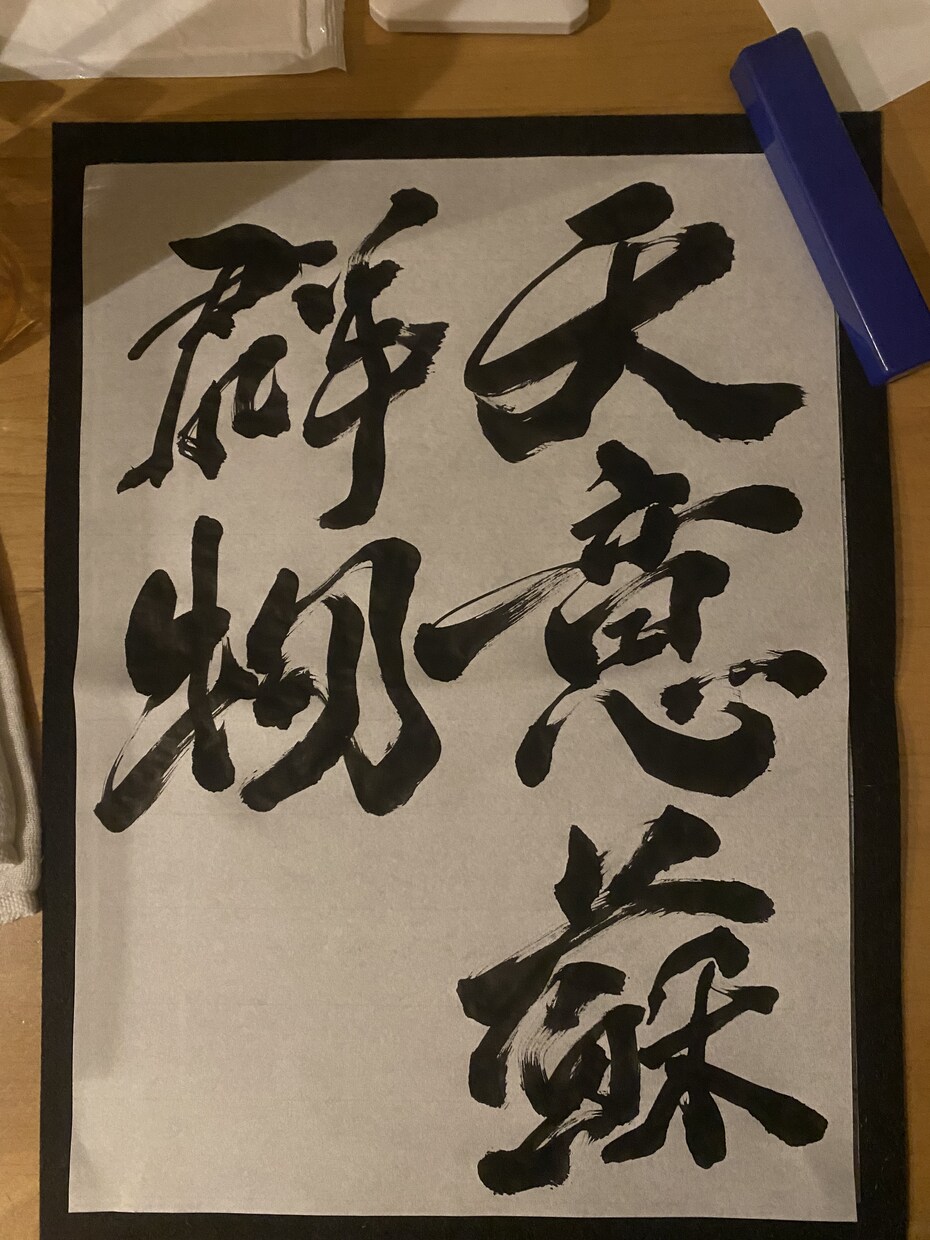 天意蘇
群物